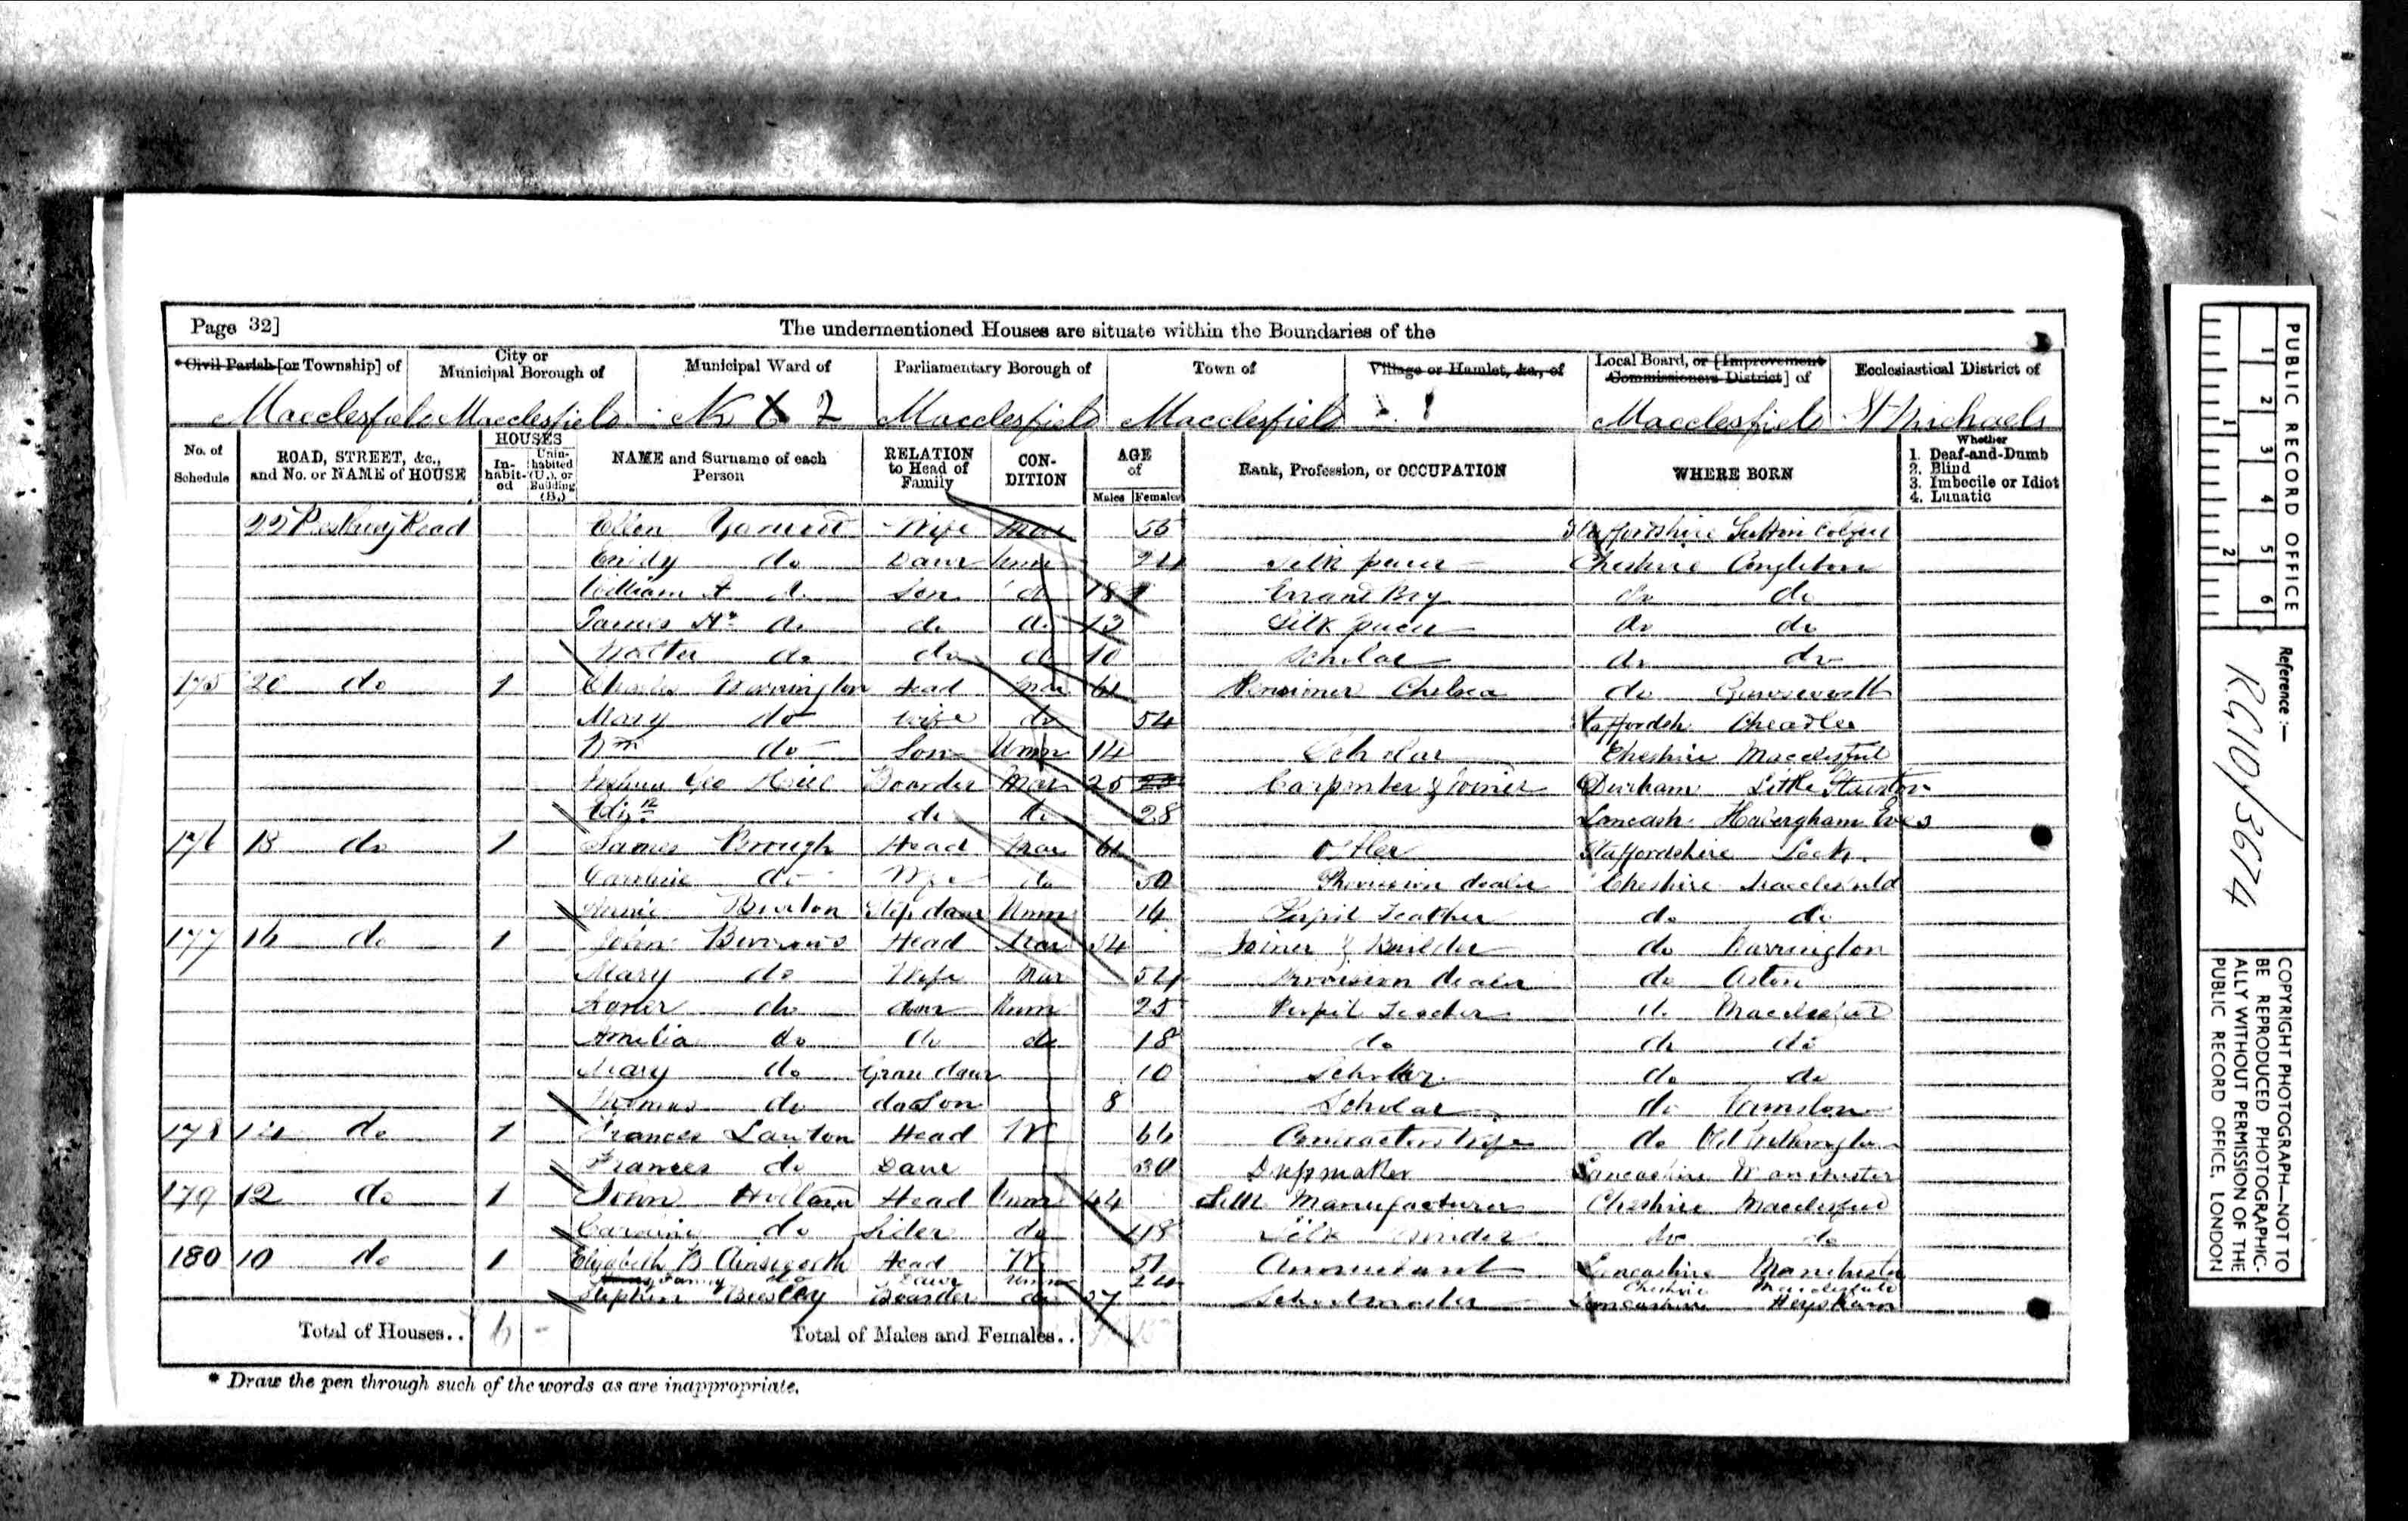 Page 32]
The undermentioned Houses are situate within the Boundaries of the
* Civil Parish [or Township] of
City or Municipal Borough of
Municipal Ward of
Parliamentary Borough of
Town of
Village or Hamlet, &c., of
Local Board, or [Improvement Commissioners District] of
Ecclesiastical District of
Macclesfield Macclesfield No 6 2 Macclesfield Macclesfield Macclesfield St Michaels
No. of Schedule
ROAD, STREET, &c., and No. or NAME of HOUSE
HOUSES
In-habit-ed
Unin-habited (U.), or Building (B.)
NAME and Surname of each Person
RELATION to Head of Family
CON-DITION
AGE of
Males Females
Rank, Profession, or OCCUPATION
WHERE BORN
Whether
1. Deaf-and-Dumb
2. Blind
3. Imbecile or Idiot
4. Lunatic
22 Road Ellen Wife Mar 55 Staffordshire Sutton
do Daur Unm 24 Silk Cheshire Congleton
William A do Son do 18 Errand Boy do do
James Hy do do do 13 Silk do do
Walter do do do 10 Scholar do do
175 20 do 1 Charles Warrington Head Mar 61 Pensioner Chelsea do
Mary do Wife do 54 Staffordsh Cheadle
Wm do Son Unm 14 Scholar Cheshire Macclesfield
Joshua Geo Hill Boarder Mar 25 Carpenter & Joiner Durham Little Stainton
Elizth do do 28 Lancash Habergham Eves
176 18 do 1 James Brough Head Mar 61 Ostler Staffordshire Leek
Caroline do Wife do 50 Provision dealer Cheshire Macclesfield
Annie Burton Step daur Unm 14 Pupil Teacher do do
177 16 do 1 John Burrows Head Mar 54 Joiner & Builder do Warrington
Mary do Wife Mar 54 Provision dealer do Aston
do daur Unm 25 Pupil Teacher do Macclesfield
Amelia do do do 18 do do do
Mary do Gran daur 10 Scholar do do
Thomas do do Son 8 Scholar do
178 14 do 1 Frances Lawton Head W 66 Contractors Wife do Old Withington
Frances do Daur 30 Dressmaker Lancashire Manchester
179 12 do 1 John Holland Head Unm 44 Silk Manufacturer Cheshire Macclesfield
Caroline do Sister do 48 Silk Winder do do
180 10 do 1 Elizabeth B Ainsworth Head W 51 Annuitant Lancashire Manchester
Fanny do Daur Unm 24 Cheshire Macclesfield
Stephen Beesley Boarder do 27 Schoolmaster Lancashire
Total of Houses.. 6 -
Total of Males and Females..
* Draw the pen through such of the words as are inappropriate.
PUBLIC RECORD OFFICE
1 2 3 4 5 6
1 2
Reference :—
RG10/3674
COPYRIGHT PHOTOGRAPH—NOT TO
BE REPRODUCED PHOTOGRAPHIC-
ALLY WITHOUT PERMISSION OF THE
PUBLIC RECORD OFFICE, LONDON